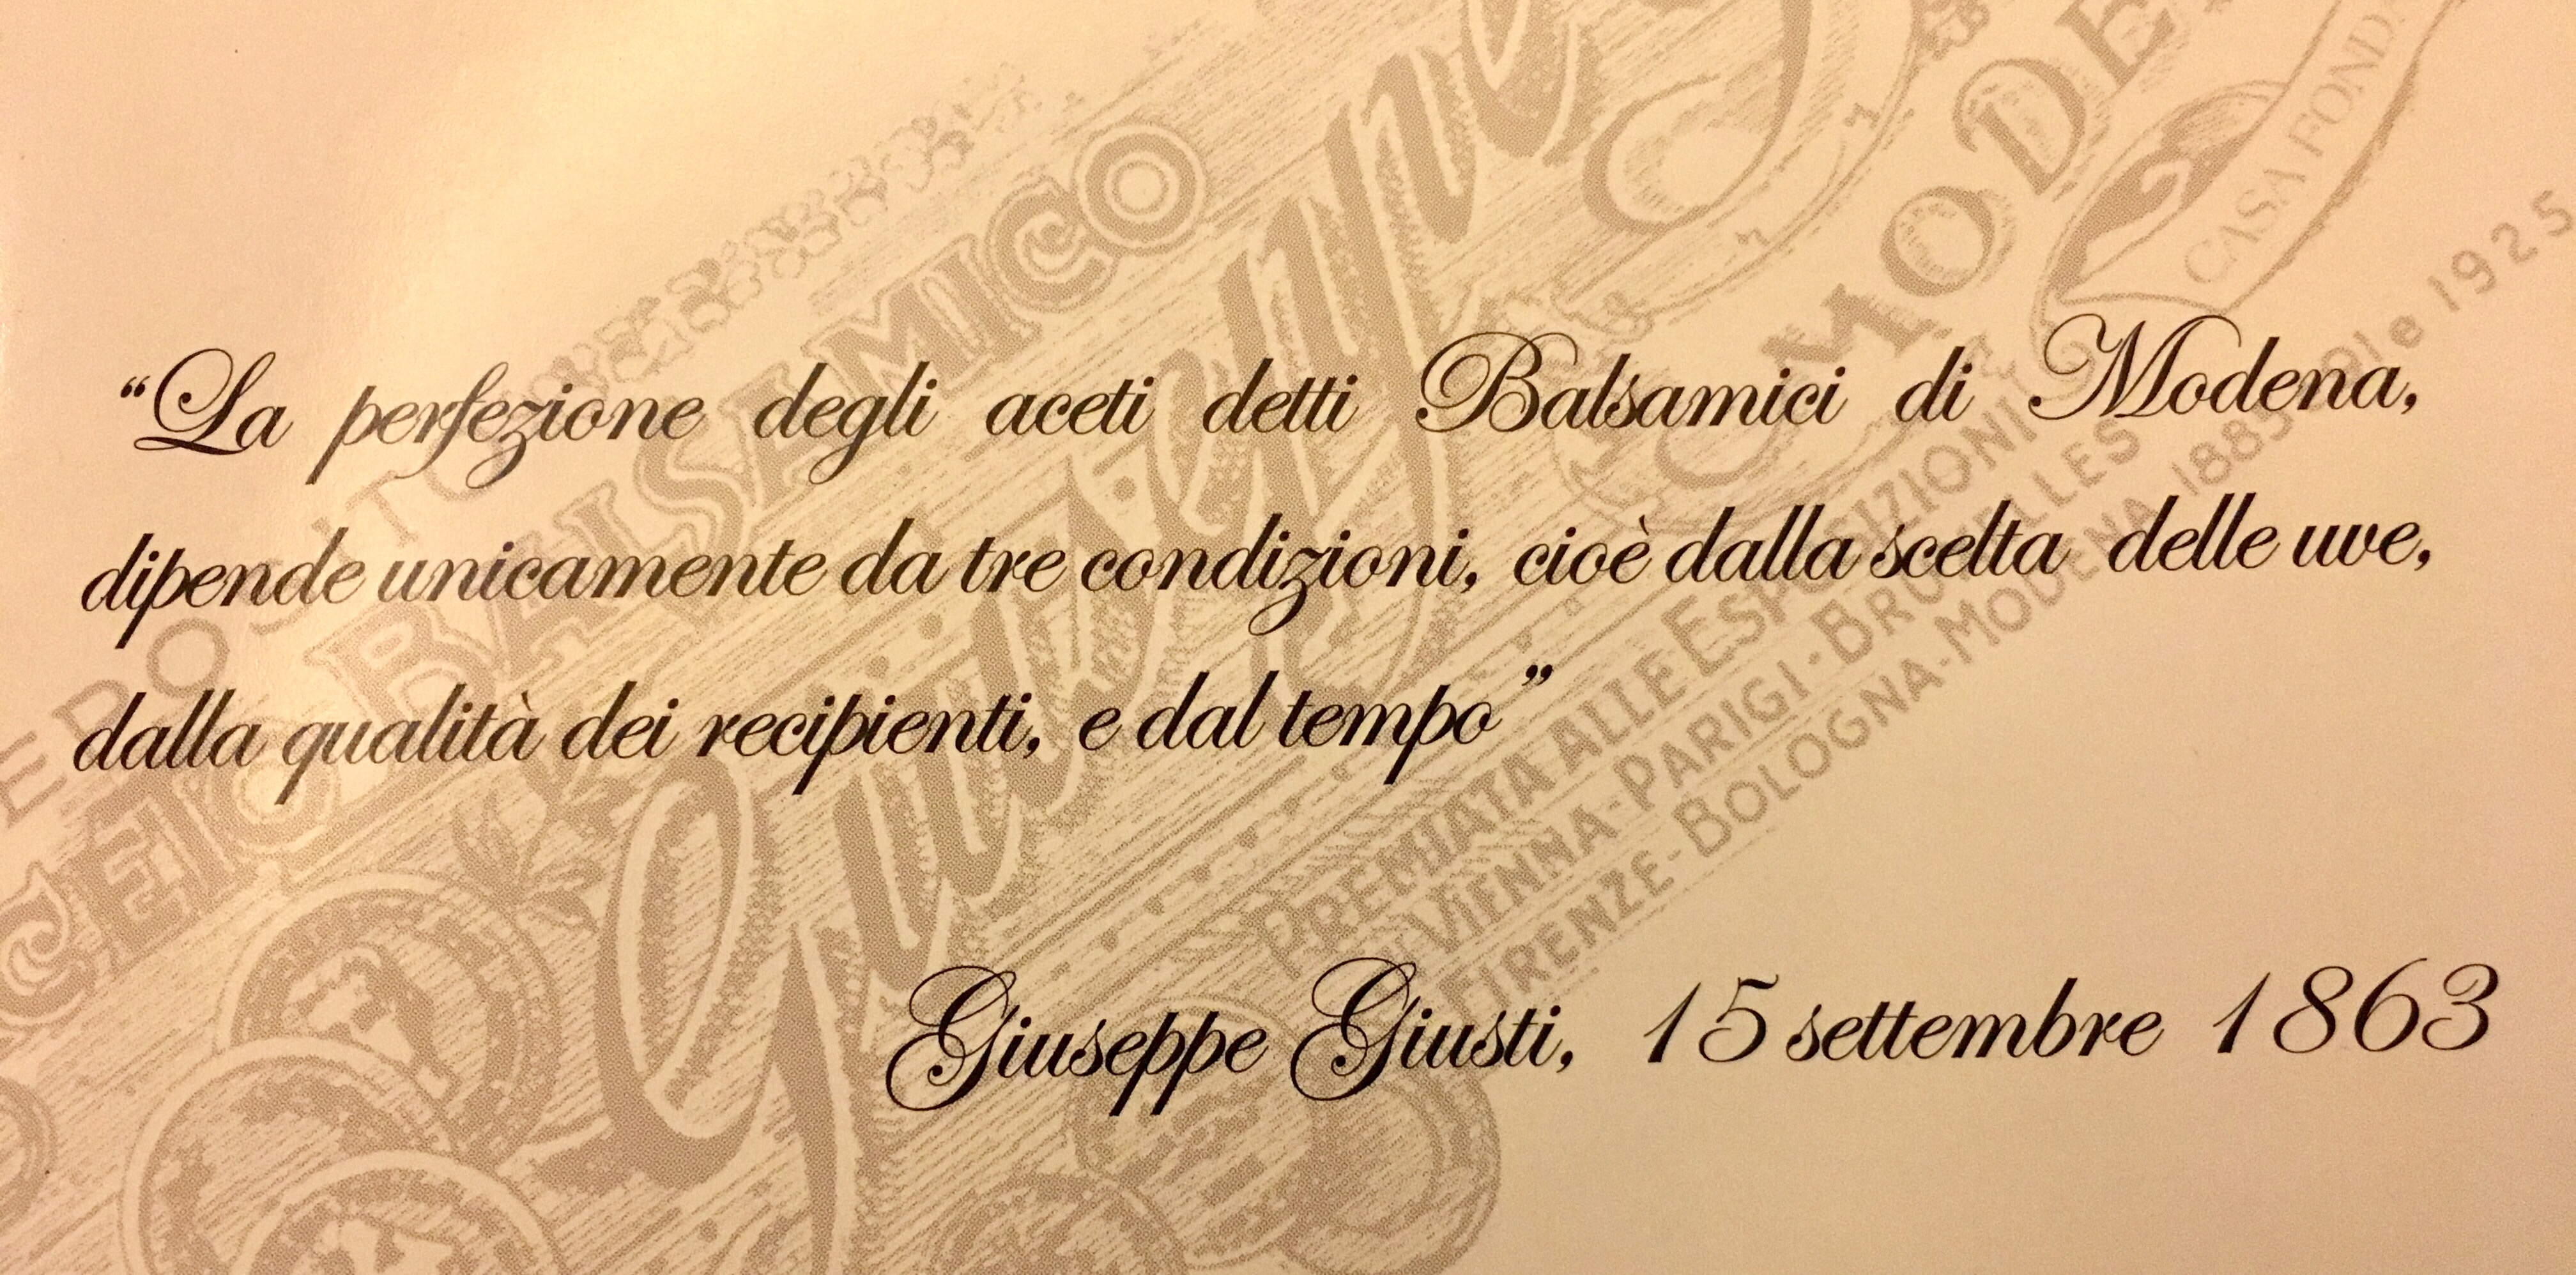 “La perfezione degli aceti detti Balsamici di Modena,
dipende unicamente da tre condizioni, cioè dalla scelta delle uve,
dalla qualità dei recipienti, e dal tempo”
Giuseppe Giusti, 15 settembre 1863
BALSAMICO
Giuseppe
MODE
CASA FOND
PREMIATA ALLE ESPOSIZIONI
DI VIENNA - PARIGI - BRUXELLES
FIRENZE - BOLOGNA - MODENA 1885 e 1925